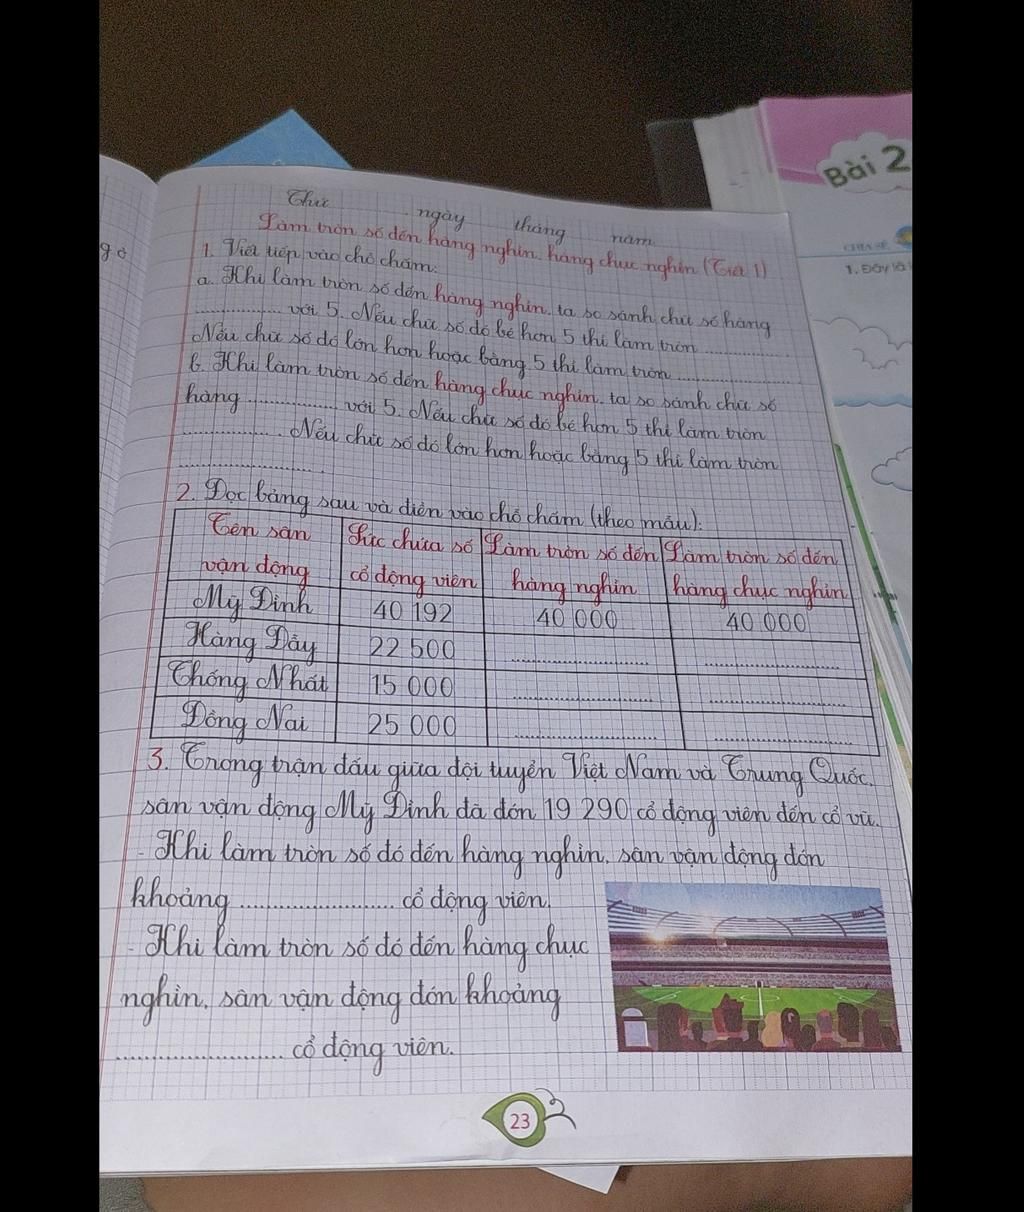 Bài 2
CHIA SẺ
1. Đây là
gò
Thứ ngày tháng năm
Làm tròn số đến hàng nghìn, hàng chục nghìn (Tiết 1)
1. Viết tiếp vào chỗ chấm:
a. Khi làm tròn số đến hàng nghìn, ta so sánh chữ số hàng
.................. với 5. Nếu chữ số đó bé hơn 5 thì làm tròn ..................
Nếu chữ số đó lớn hơn hoặc bằng 5 thì làm tròn ..................
b. Khi làm tròn số đến hàng chục nghìn, ta so sánh chữ số
hàng .................. với 5. Nếu chữ số đó bé hơn 5 thì làm tròn
.................. . Nếu chữ số đó lớn hơn hoặc bằng 5 thì làm tròn
.................. .
2. Đọc bảng sau và điền vào chỗ chấm (theo mẫu):
Tên sân vận động Sức chứa số cổ động viên Làm tròn số đến hàng nghìn Làm tròn số đến hàng chục nghìn
Mỹ Đình 40 192 40 000 40 000
Hàng Đẫy 22 500 .................. ..................
Thống Nhất 15 000 .................. ..................
Đồng Nai 25 000 .................. ..................
3. Trong trận đấu giữa đội tuyển Việt Nam và Trung Quốc,
sân vận động Mỹ Đình đã đón 19 290 cổ động viên đến cổ vũ.
- Khi làm tròn số đó đến hàng nghìn, sân vận động đón
khoảng .................. cổ động viên.
- Khi làm tròn số đó đến hàng chục
nghìn, sân vận động đón khoảng
.................. cổ động viên.
23